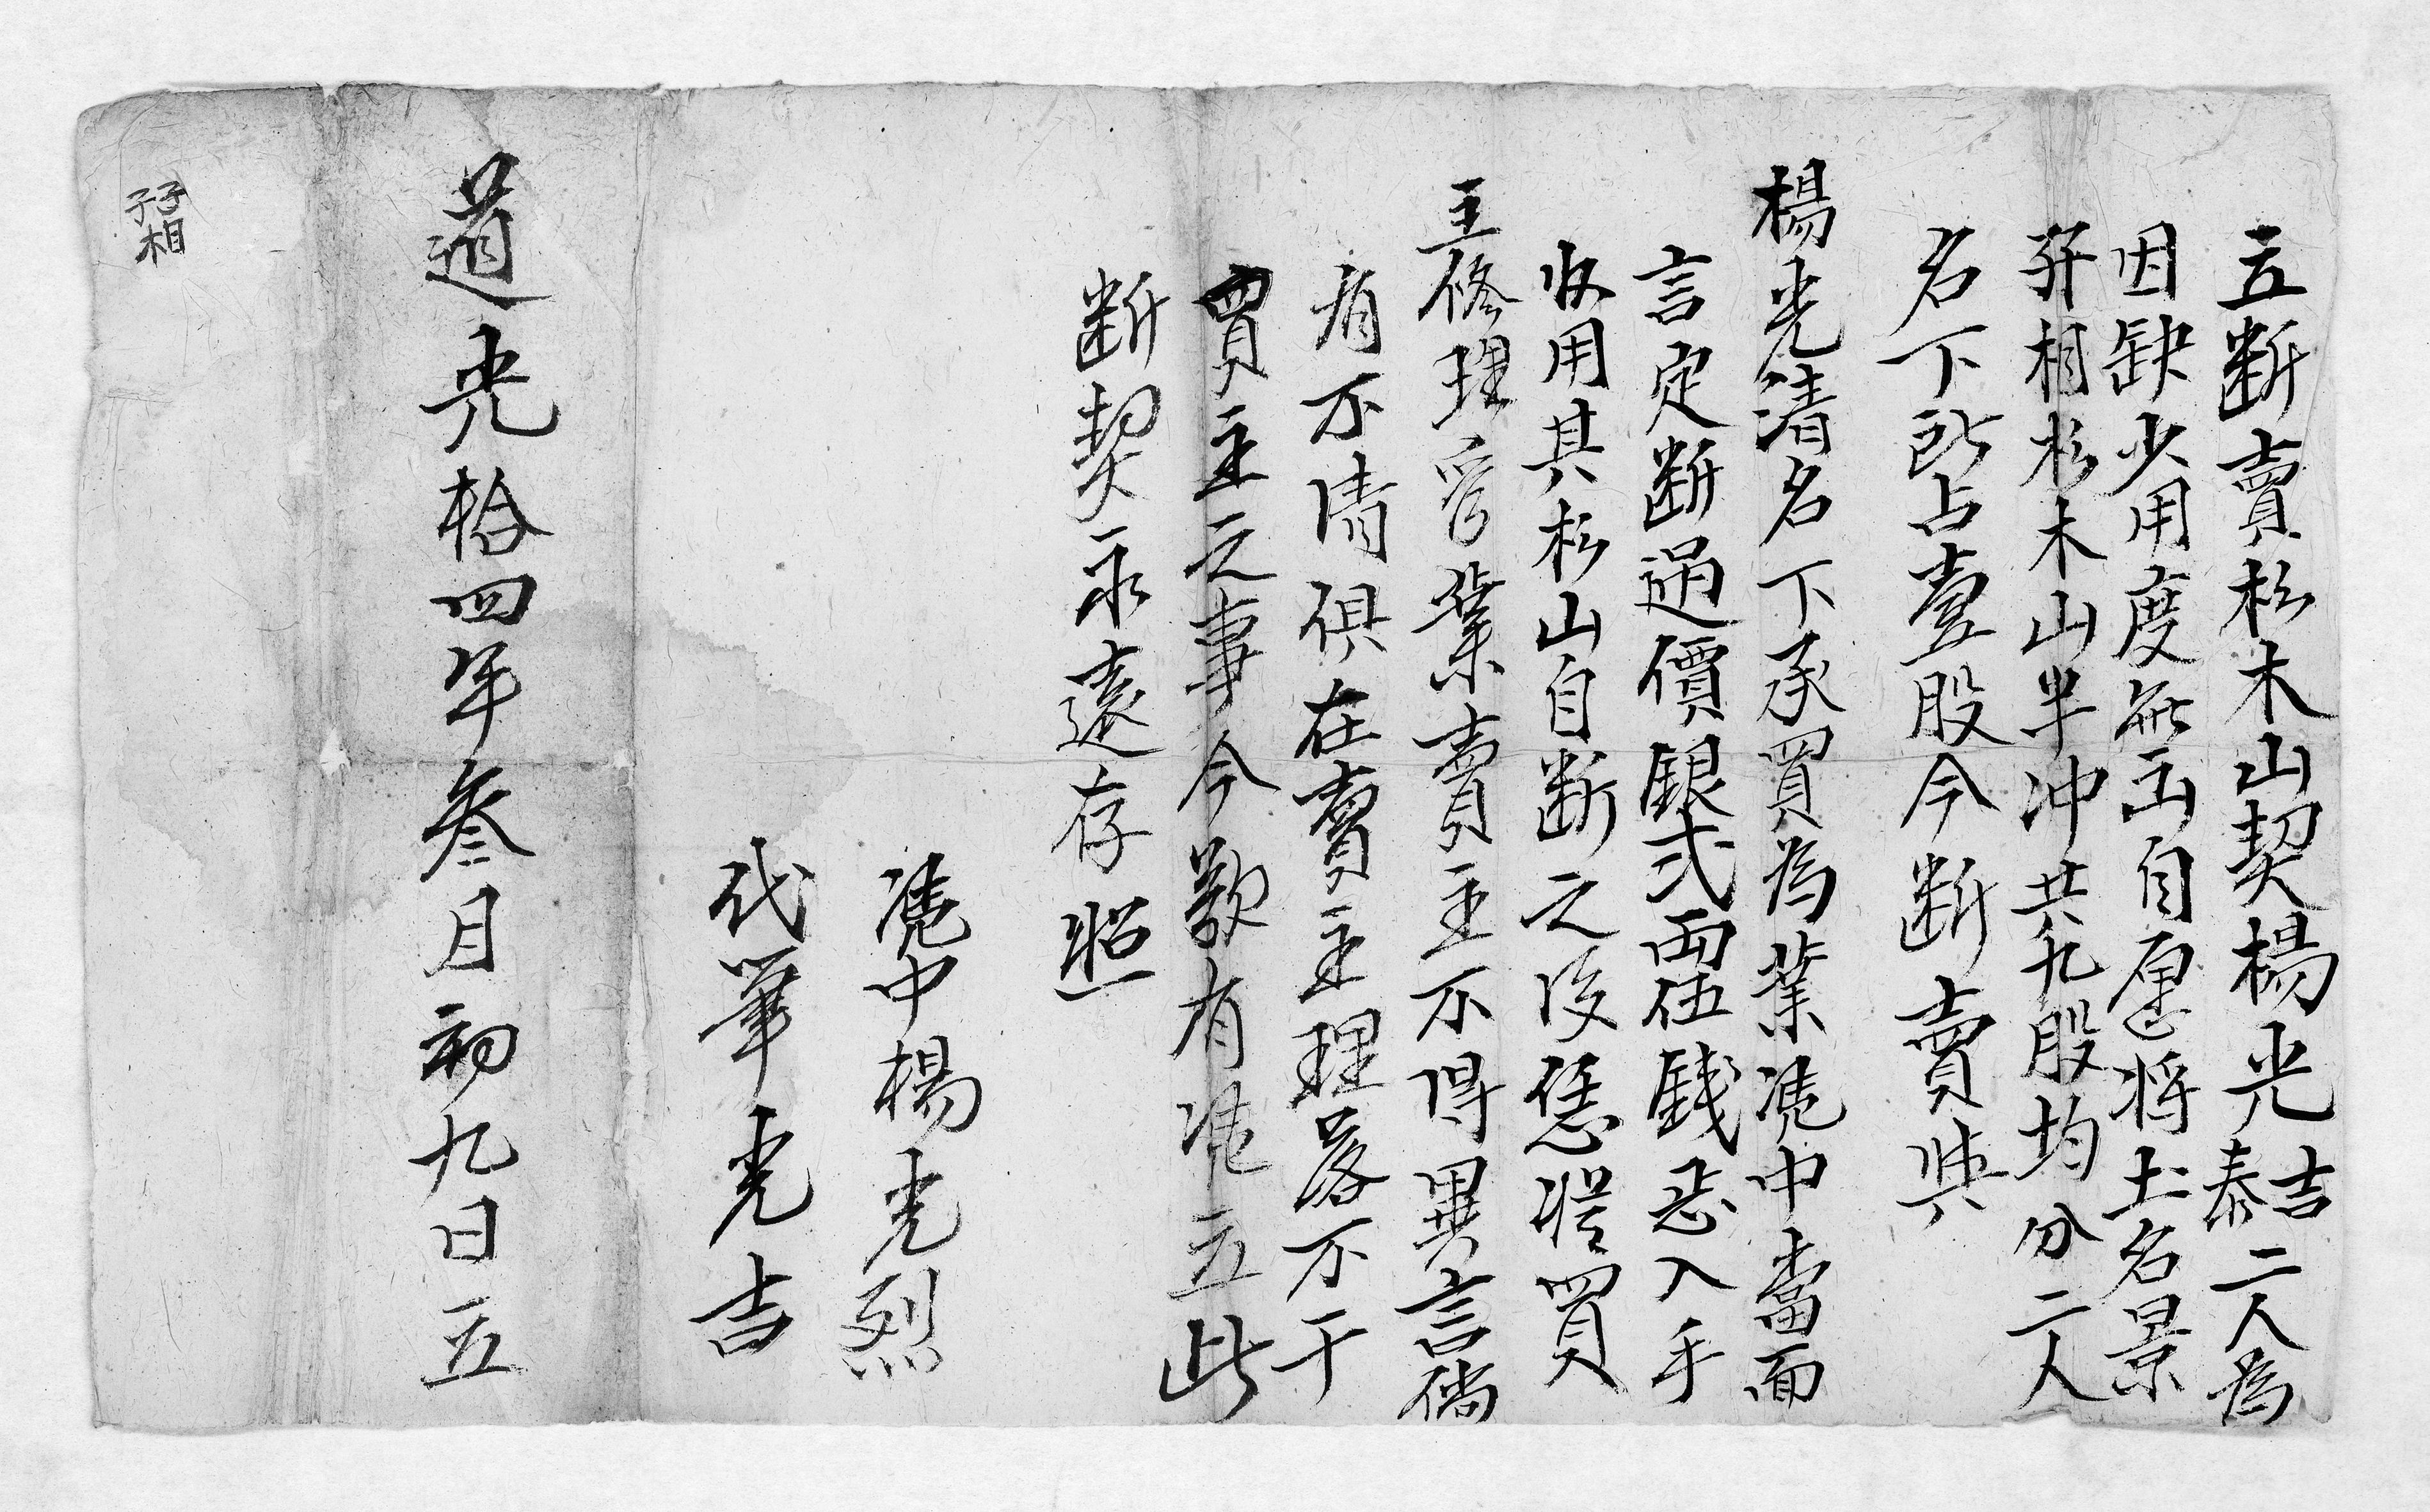 立断賣杉木山契楊光吉泰二人為
因缺少用度無出自愿将土名景
孖相杉木山半冲共九股均分二人
名下所占壹股今断賣與
楊光清名下承買為業凴中當面
言定断過價銀弍両伍錢
入手
收用其杉山自断之後恁從買
主修理管業賣主不得異言倘
有不清俱在賣主理落不干
買主之事今欲有凴立此
断契永遠存照
凴中楊光烈
代筆光吉
道光拾四年叁月初九日立
孖相